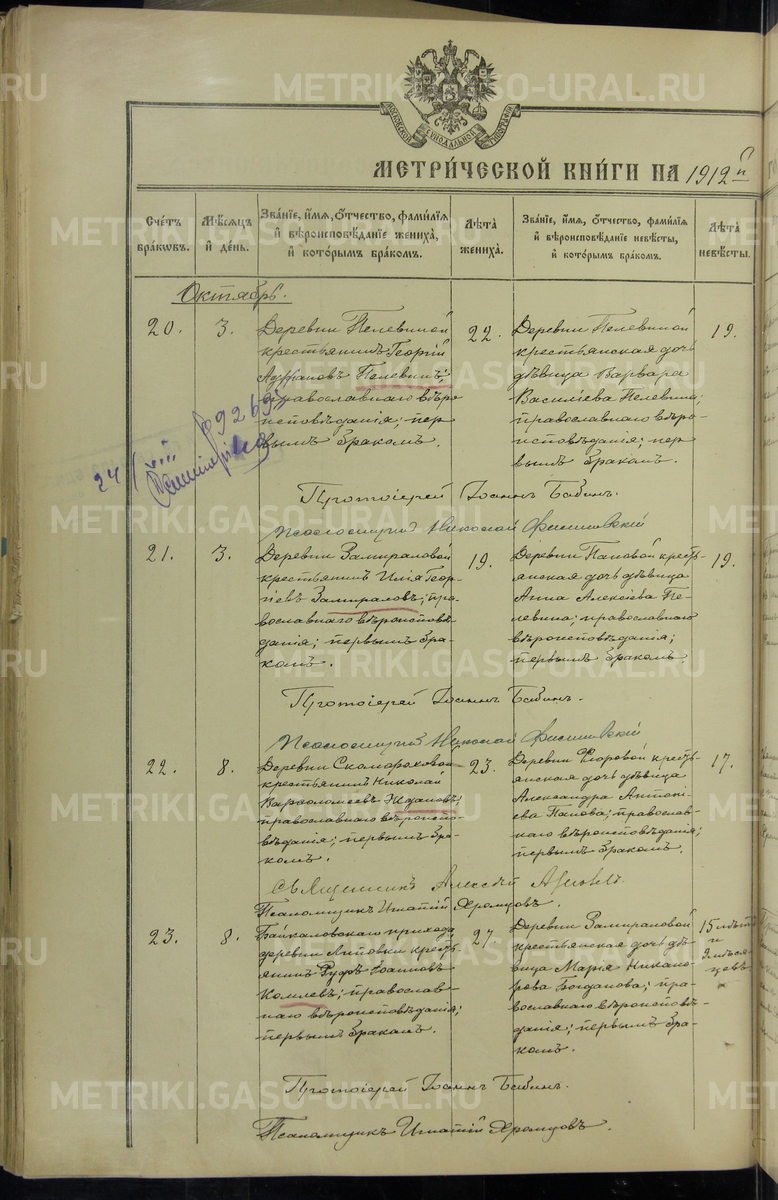 МОСКОВСКОЙ СѴНОДАЛЬНОЙ ТИПОГРАФІИ
МЕТРИ́ЧЕСКОЙ КНИ́ГИ НА 1912 г.
Сче́тъ бра́ковъ.
Мѣ́сяцъ и҆ де́нь.
Зва́нїе, и҆́мя, ѻ҆́тчество, фами́лїя и҆ вѣроисповѣ́данїе жениха̀, и҆ кото́рымъ бра́комъ.
Лѣ́та жениха̀.
Зва́нїе, и҆́мя, ѻ҆́тчество, фами́лїя и҆ вѣроисповѣ́данїе невѣ́сты, и҆ кото́рымъ бра́комъ.
Лѣ́та невѣ́сты.
Октябрь.
20.
3.
Деревни Пелевиной
крестьянинъ Георгій
Пелевинъ;
православнаго вѣро
исповѣданія; пер
вымъ бракомъ.
22.
Деревни Пелевиной
крестьянская дочь
дѣвица Варвара
Василіева Пелевина;
православнаго вѣро-
исповѣданія; пер
вымъ бракомъ.
19.
24/VIII
Протоіерей Іоаннъ Бабинъ.
Псаломщикъ Николай
21.
3.
Деревни Замираловой
крестьянинъ Илія Геор-
гіевъ Замираловъ; пра-
вославнаго вѣроисповѣ-
данія; первымъ бра-
комъ.
19.
Деревни Пановой кресть-
янская дочь дѣвица
Анна Алексіева Пе-
левина; православнаго
вѣроисповѣданія;
первымъ бракомъ.
19.
Протоіерей Іоаннъ Бабинъ.
Псаломщикъ Николай
22.
8.
Деревни Скомороховой
крестьянинъ Николай
Варѳоломеевъ Ждановъ;
православнаго вѣроиспо-
вѣданія; первымъ бра-
комъ.
23.
Деревни кресть-
янская дочь дѣвица
Александра Антоні-
ева Панова; православ-
наго вѣроисповѣданія;
первымъ бракомъ.
17.
Священникъ Алексѣй
Псаломщикъ Игнатій Хромцовъ.
23.
8.
Байкаловскаго прихода,
деревни Липовки кресть-
янинъ Руфъ Іоанновъ
Комлевъ; православ-
наго вѣроисповѣданія;
первымъ бракомъ.
27.
Деревни Замираловой
крестьянская дочь дѣ-
вица Марія Никано-
рова Богданова; пра-
вославнаго вѣроисповѣ-
данія; первымъ бра-
комъ.
15 лѣтъ
и
9 мѣся-
цевъ
Протоіерей Іоаннъ Бабинъ.
Псаломщикъ Игнатій Хромцовъ.
METRIKI.GASO-URAL.RU